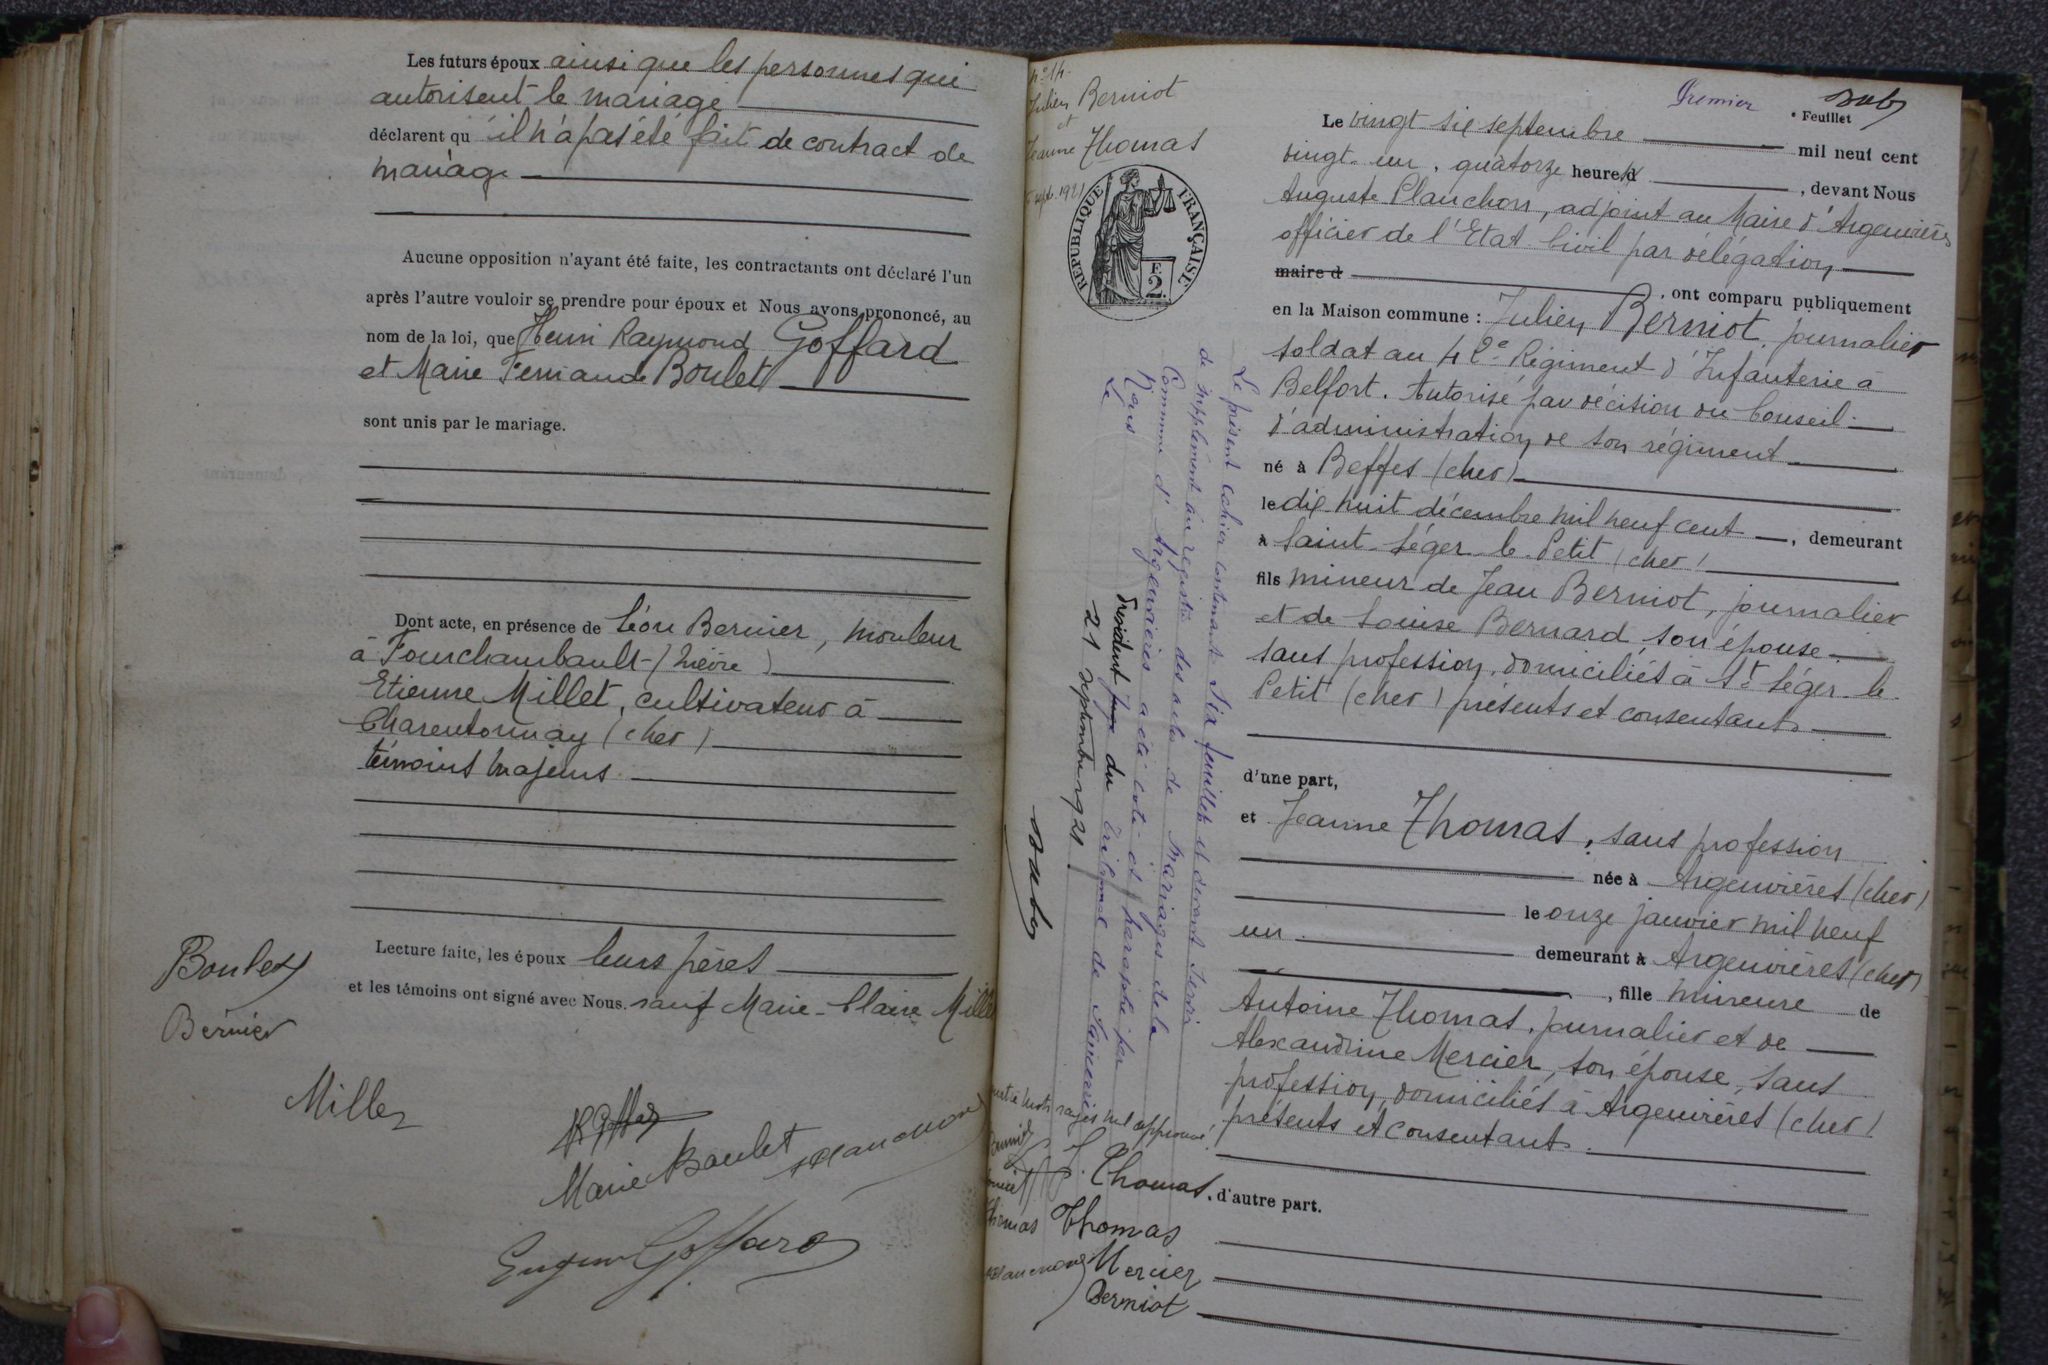 Les futurs époux ainsi que les personnes qui
autorisent le mariage
déclarent qu'il n'a pas été fait de contract de
mariage
Aucune opposition n'ayant été faite, les contractants ont déclaré l'un
après l'autre vouloir se prendre pour époux et Nous avons prononcé, au
nom de la loi, que Henri Raymond Goffard
et Marie Fernande Boulet
sont unis par le mariage.
Dont acte, en présence de Léon Bernier, mouleur
à Fourchambault (Nièvre)
Etienne Millet, cultivateur à
Charentonnay (Cher)
témoins majeurs
Lecture faite, les époux leurs pères
et les témoins ont signé avec Nous. sauf Marie-Claire Mille
Boulet
Bernier
Millet
Marie Boulet
Planchon
Eugène Goffard
Nº 14.
Julien Berniot
et
Jeanne Thomas
sept. 1921
RÉPUBLIQUE FRANÇAISE
F.
2.
Le présent cahier contenant six feuillets et devant servir
de supplément au registre des actes de Mariages de la
Commune d'Argenvières a été coté et paraphé par
Nous Président Juge du Tribunal de Sancerre
Le 21 septembre 1921
mots rayés nul approuvé
J. Thomas
Thomas Thomas
Planchon Mercier
Berniot
Premier Feuillet
Le vingt six septembre mil neuf cent
vingt-un, quatorze heure d , devant Nous
Auguste Planchon, adjoint au Maire d'Argenvières
officier de l'Etat Civil par délégation
maire d , ont comparu publiquement
en la Maison commune : Julien Berniot, journalier
soldat au 42e Régiment d'Infanterie à
Belfort. Autorisé par décision du Conseil
d'administration de son régiment
né à Beffes (Cher)
le dix huit décembre mil neuf cent , demeurant
à Saint-Léger-le-Petit (Cher)
fils mineur de Jean Berniot, journalier
et de Louise Bernard, son épouse
sans profession, domiciliés à St Léger-le-
Petit (Cher) présents et consentants
d'une part,
et Jeanne Thomas, sans profession
née à Argenvières (Cher)
le onze janvier mil neuf
un demeurant à Argenvières (Cher)
, fille mineure de
Antoine Thomas, journalier et de
Alexandrine Mercier, son épouse, sans
profession, domiciliés à Argenvières (Cher)
présents et consentants
, d'autre part.